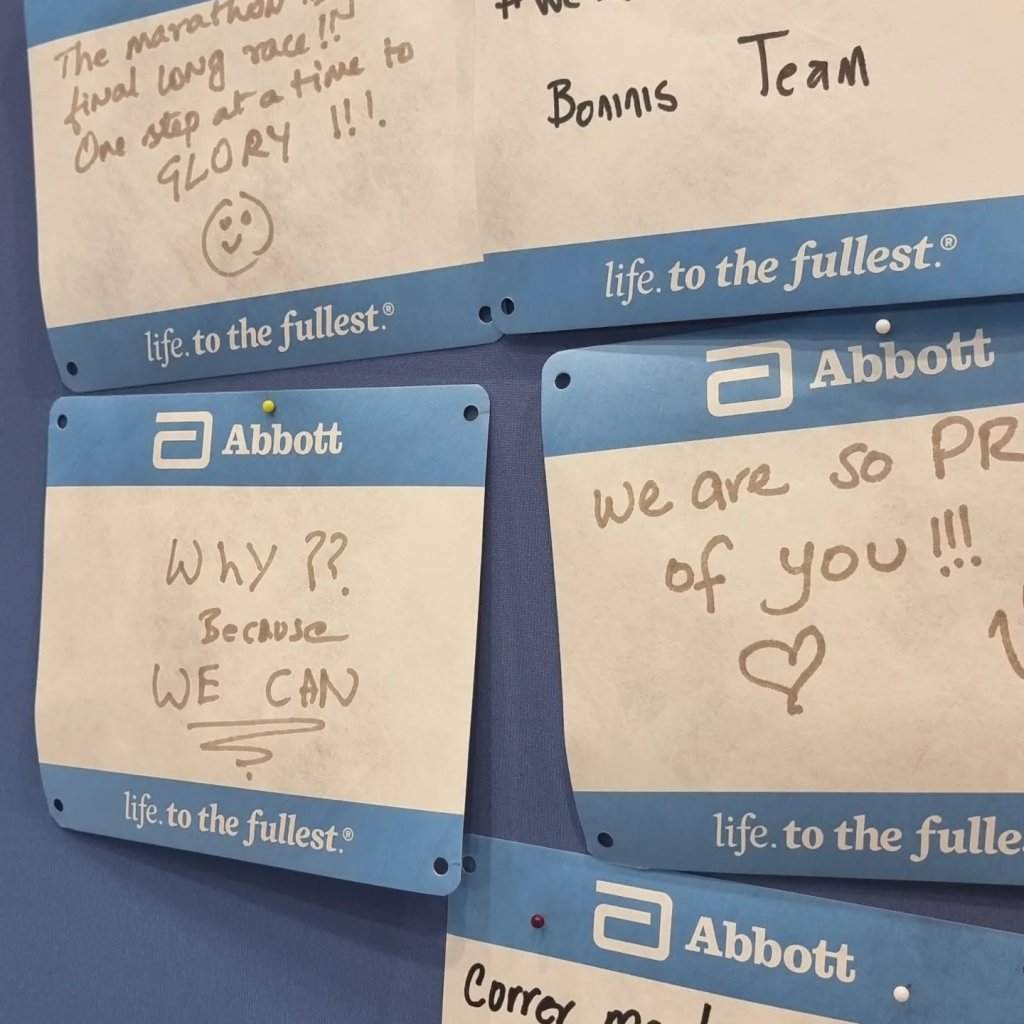 The marathon
final long race!!
One step at a time to
GLORY !!!
life. to the fullest.®
Boninis Team
life. to the fullest.®
Abbott
Why ??
Because
WE CAN
life. to the fullest.®
Abbott
We are so PR
of you !!!
life. to the fulle
Abbott
Correr